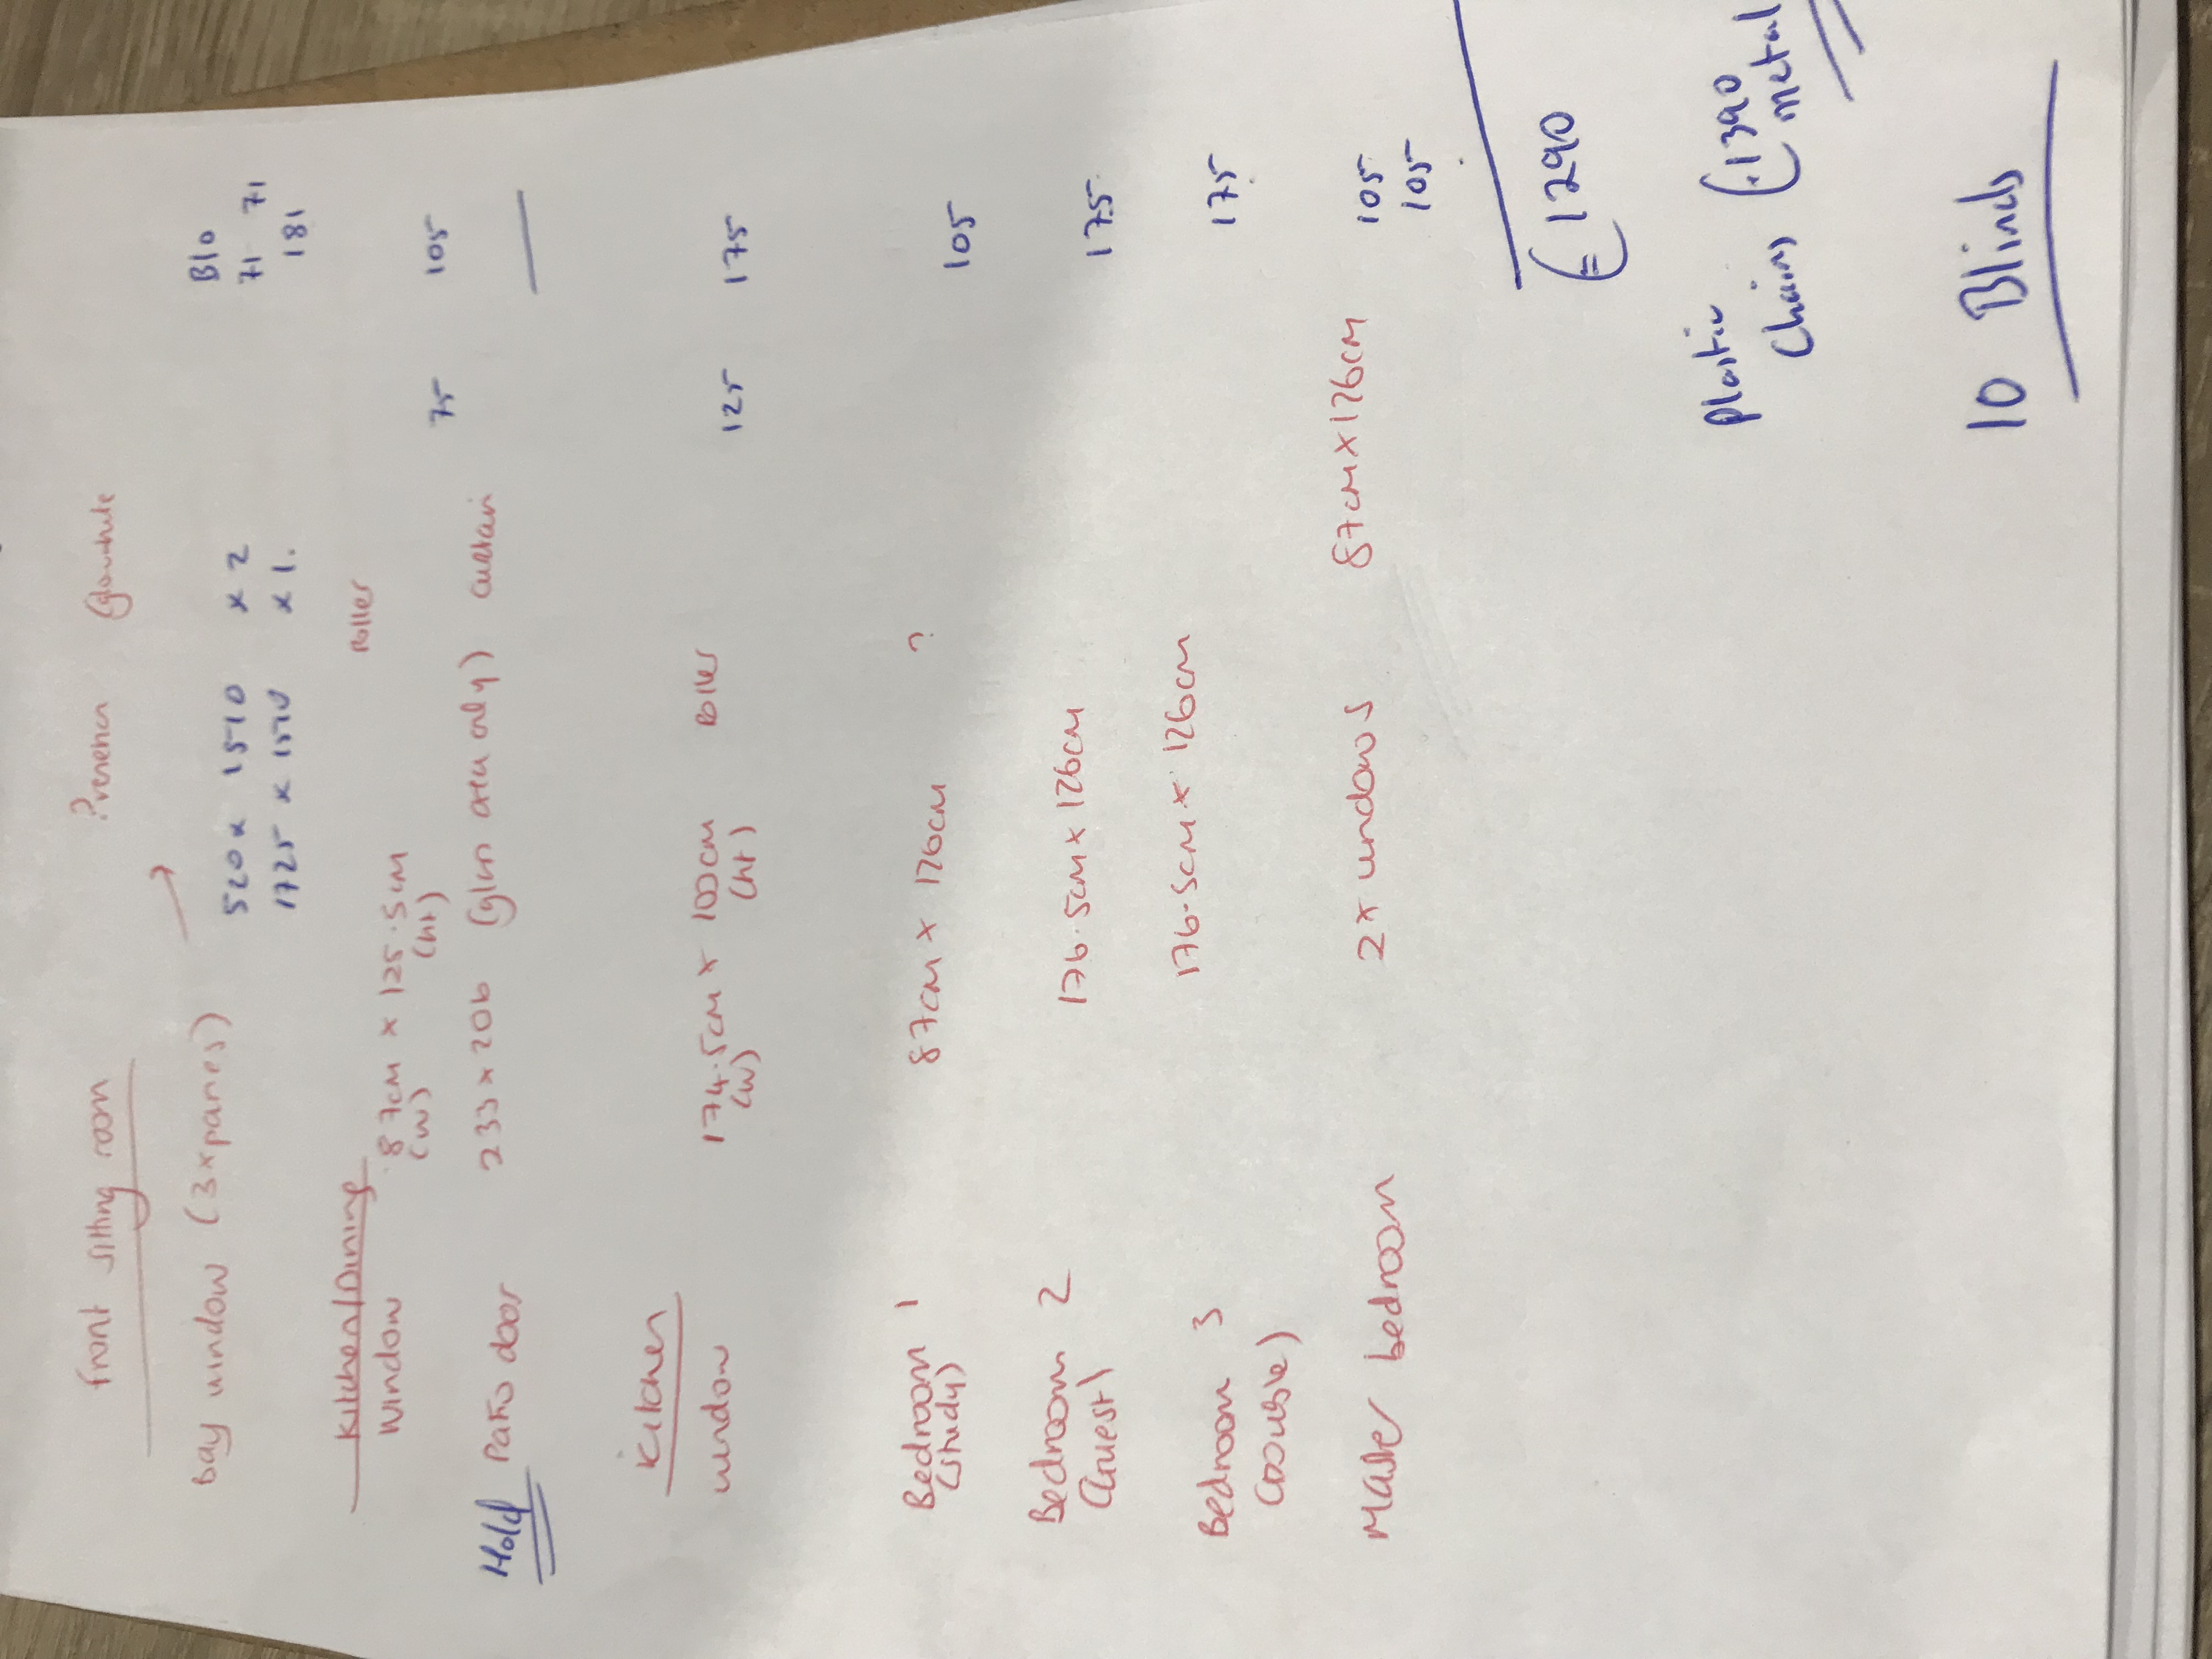 Front sitting room ?Venetian
Bay window (3xpanes) 520 x 1510 x 2 71 71
1725 x 1510 x 1. 181
Kitchen/Dining Roller
Window 87cm x 125.5cm 75 105
(w) (ht)
Hold Patio door 233 x 206 (glass area only) curtain
Kitchen
window 174.5cm x 100cm Roller 125 175
(w) (ht)
Bedroom 1 87cm x 126cm ? 105
(study)
Bedroom 2 176.5cm x 126cm 175
(Guest)
Bedroom 3 176.5cm x 126cm 175
(Double)
Master bedroom 2x windows 87cm x 126cm 105
105
1290
Plastic
Chains 1390
metal
10 Blinds